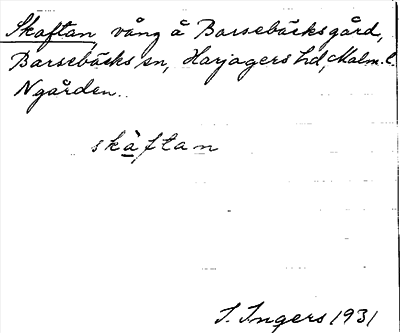 Skaftan, vång å Barsebäcksgård,
Barsebäcks sn, Harjagers hd, Malm. l.
Ngården..
skàftan
I. Ingers 1931